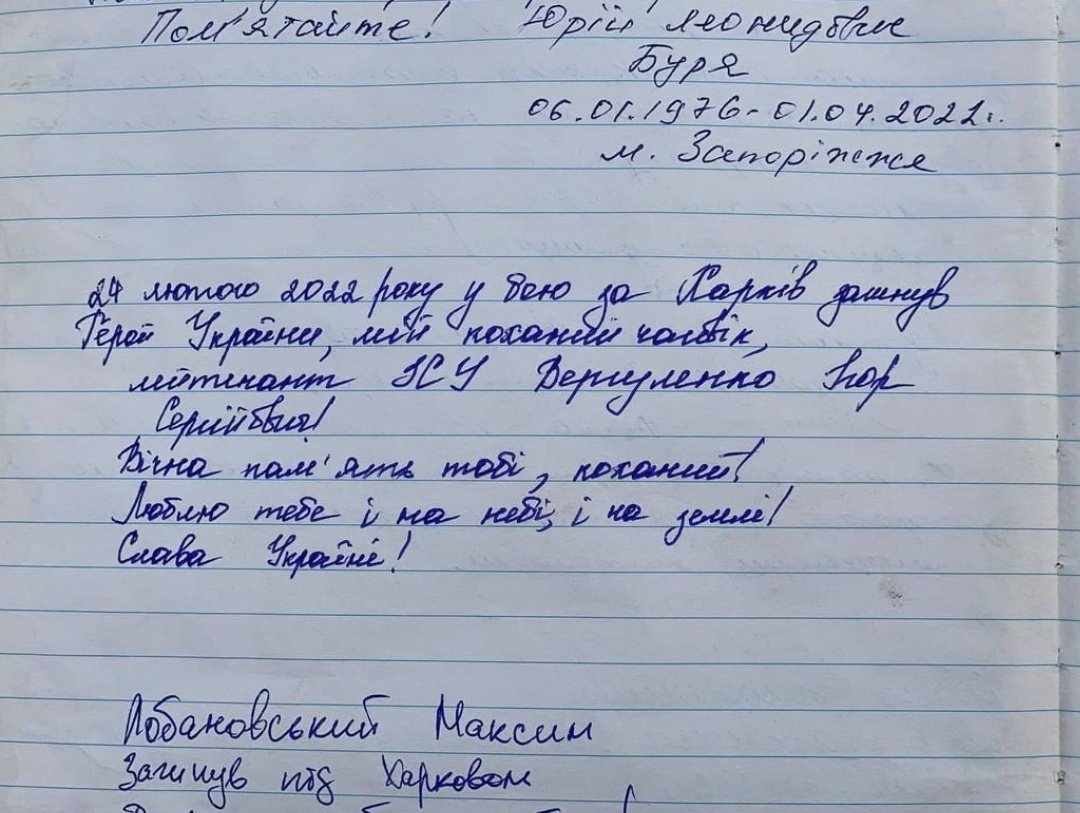 Пом'ятайте! Юрій Леонидович
Буря
06.01.1976-01.04.2022г.
м. Запоріжжя
24 лютого 2022 року у бою за Харків загинув
Герой України, мій коханий чоловік,
лейтенант ЗСУ Вергуленко Ігор
Сергійович!
Вічна пам'ять тобі, коханий!
Люблю тебе і на небі, і на землі!
Слава Україні!
Лобановський Максим
Загинув під Харковом